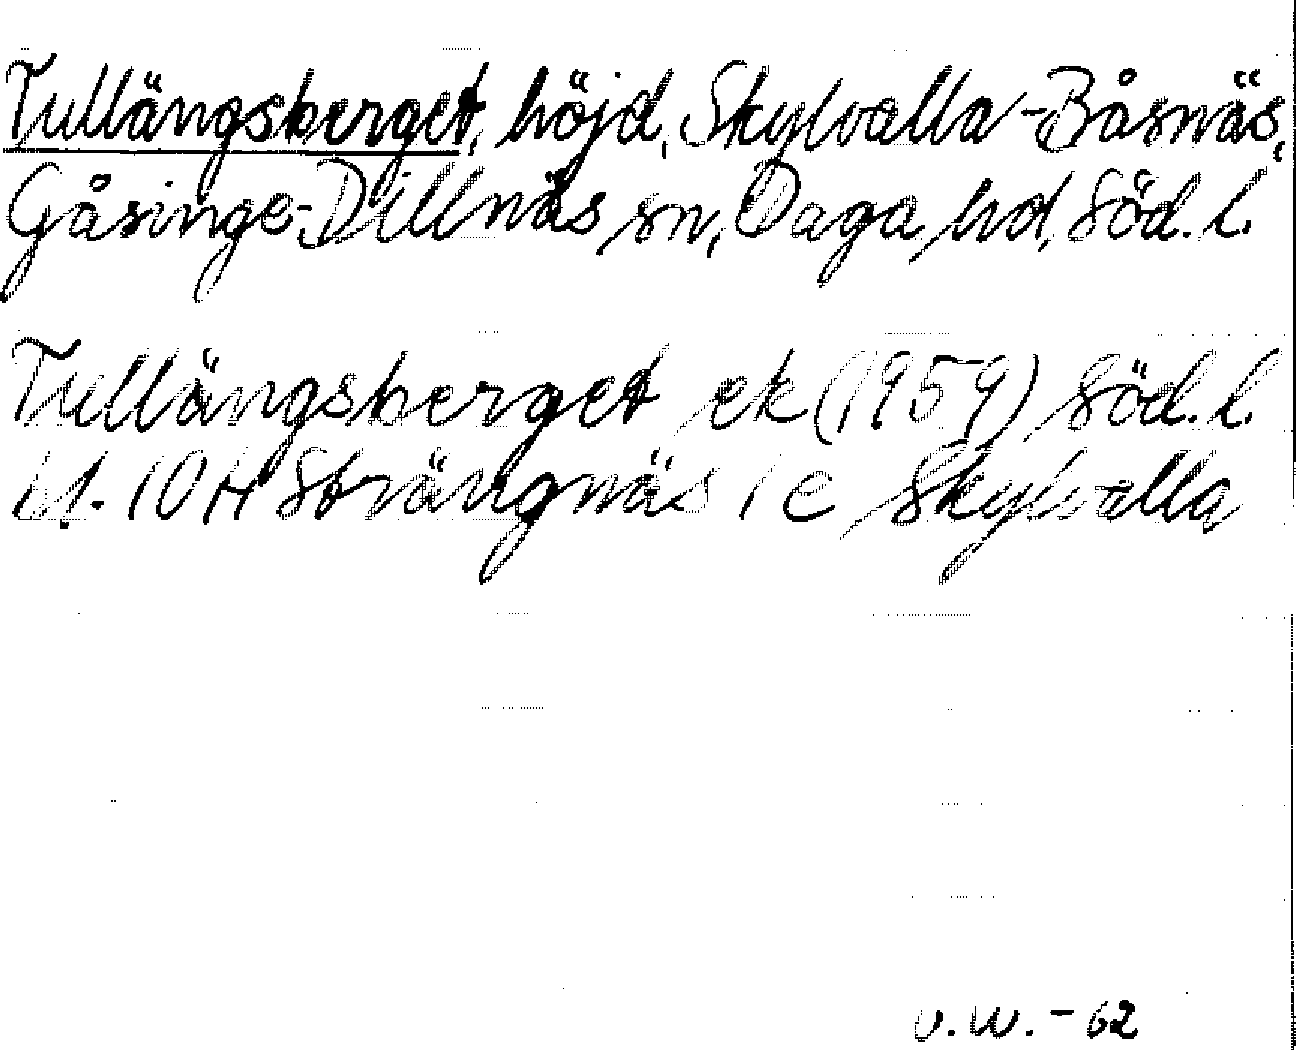 Tullängsberget, höjd, Skylvalla-Båsnäs,
Gåsinge-Dillnäs sn, Daga hd, Söd. l.
Tullängsberget ek (1959) Söd. l.
bl. 10 H Strängnäs 1 e Skylvalla
v.w. - 62